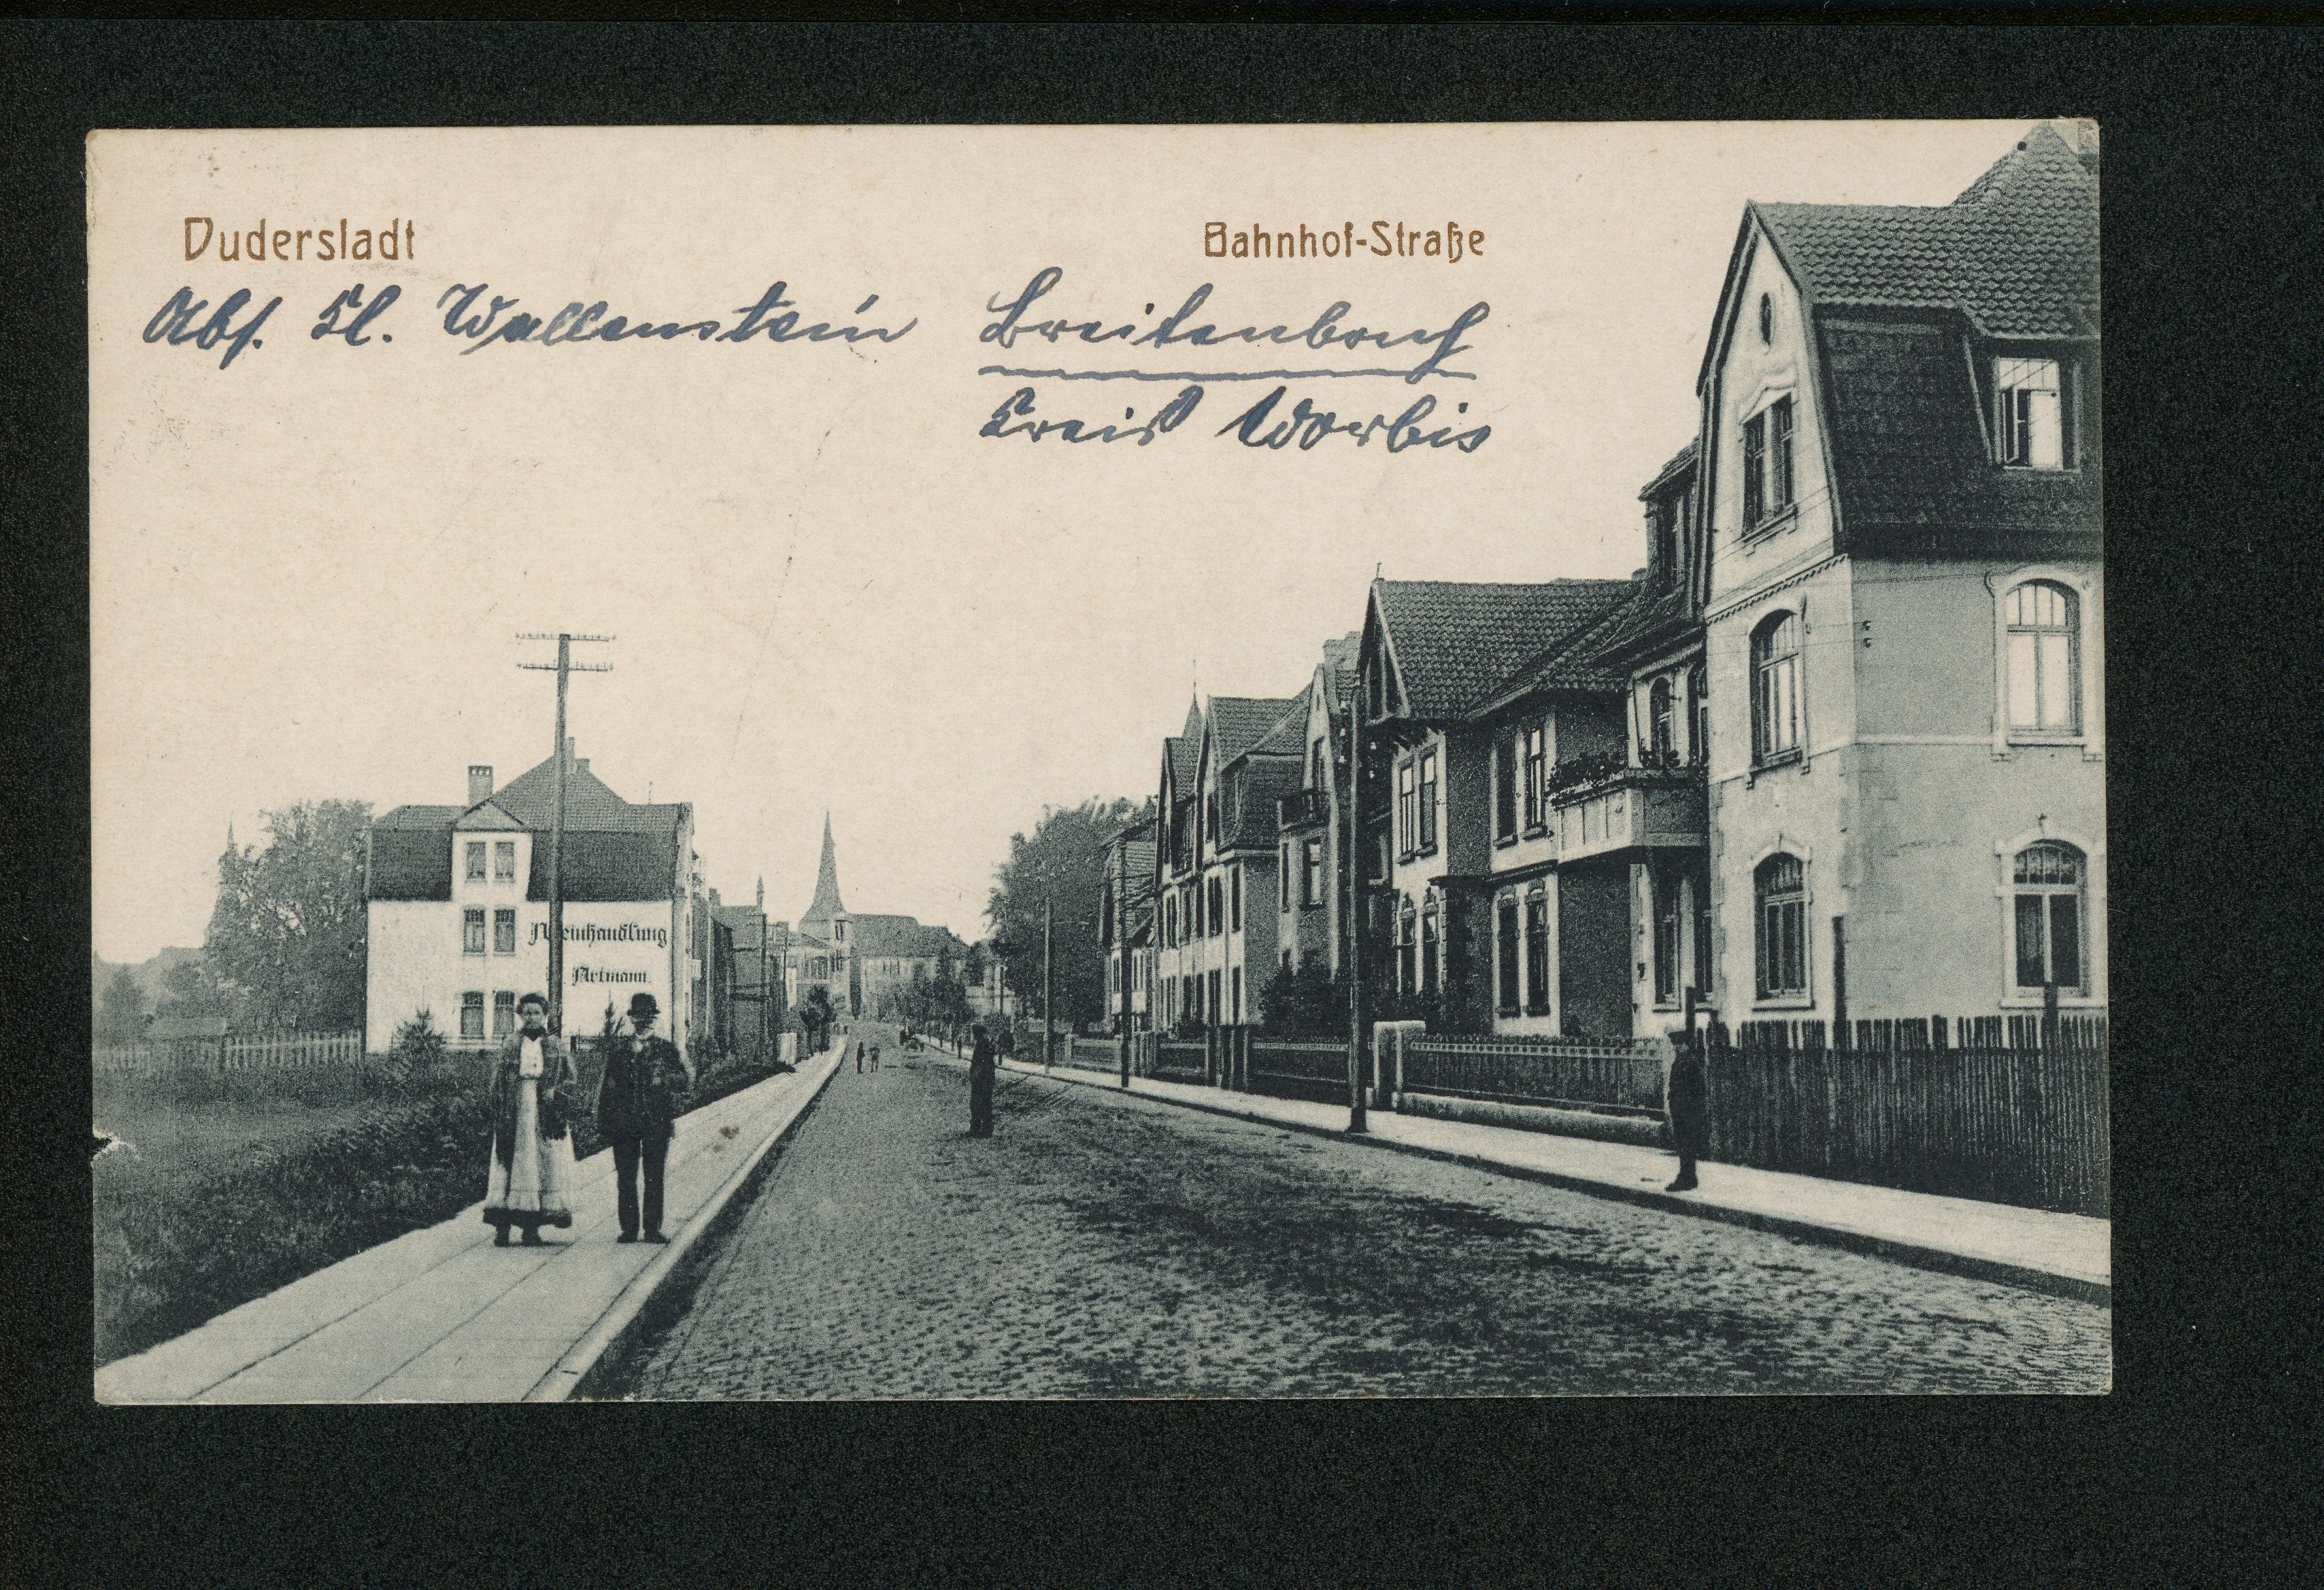 Duderstadt
Bahnhof-Straße
Abs. Kl. Wallenstein
Breitenbach
Kreis Worbis
Weinhandlung
Artmann.